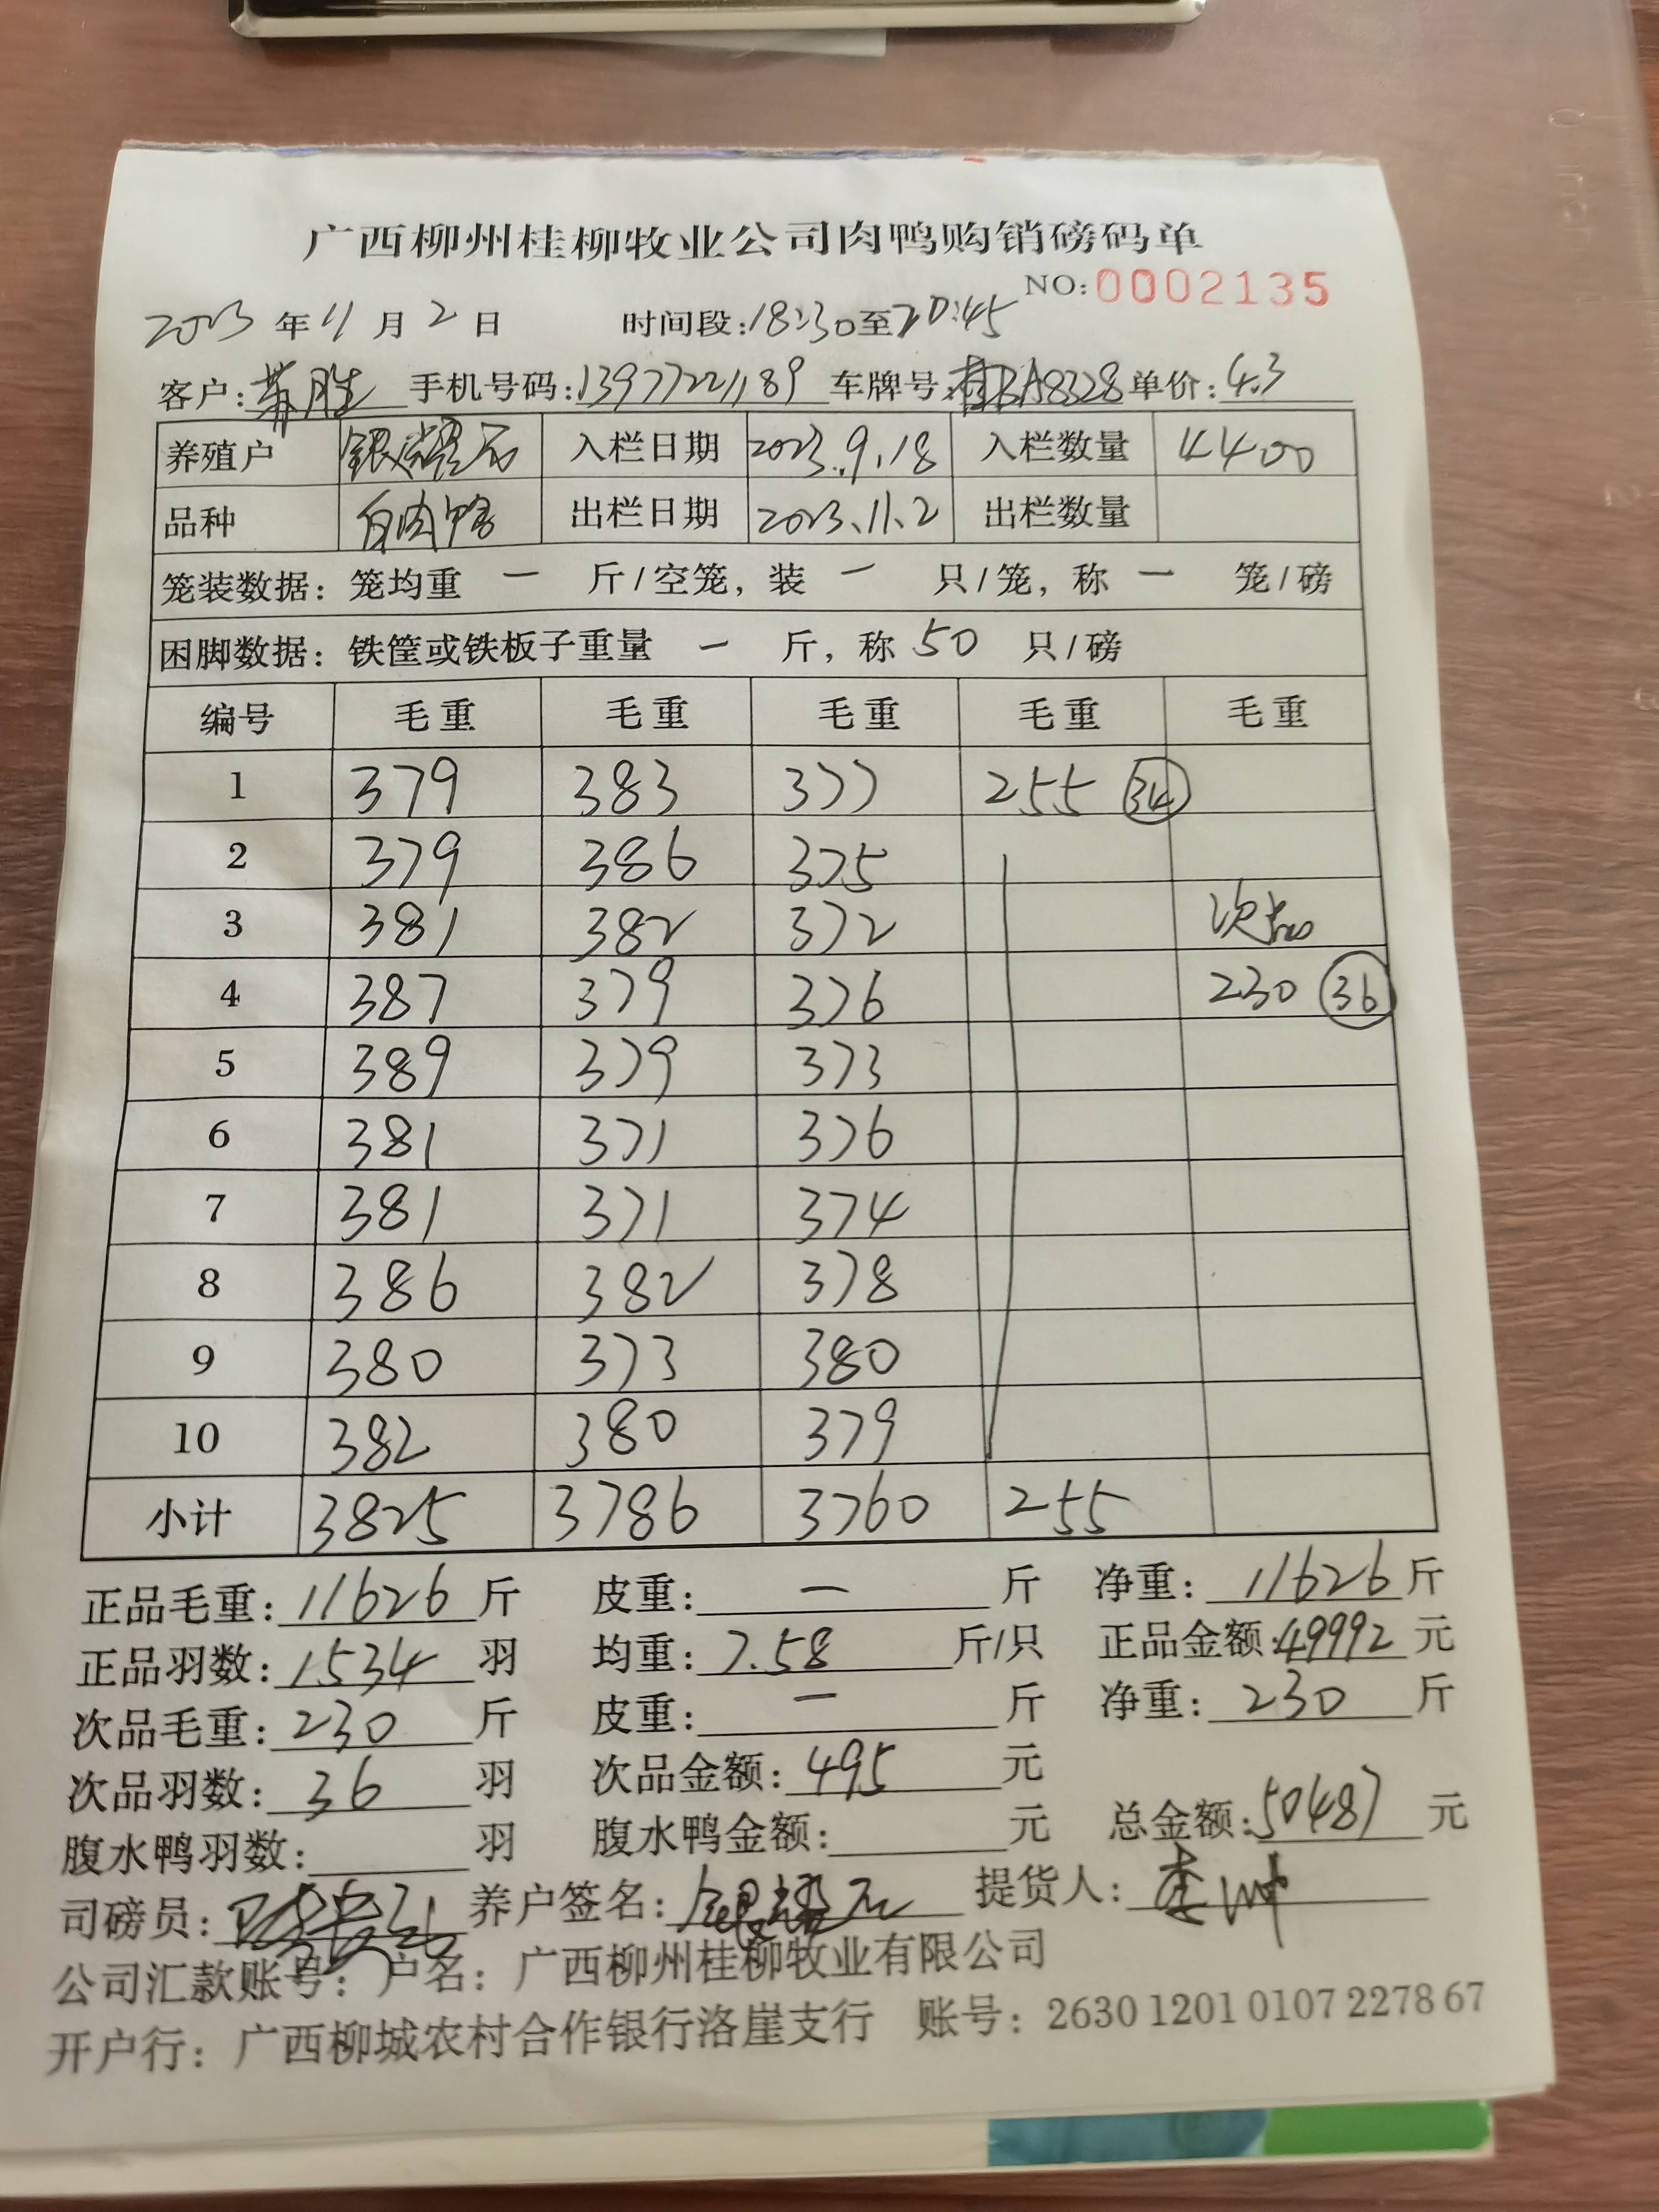 广西柳州桂柳牧业公司肉鸭购销磅码单
NO:0002135
2023年11月2日 时间段:18:30至20:45
客户: 胜 手机号码:13977221189 车牌号:桂BA8328 单价:4.3
养殖户 银 入栏日期 2023.9.18 入栏数量 4400
品种 白肉鸭 出栏日期 2023.11.2 出栏数量
笼装数据：笼均重 — 斤/空笼，装 — 只/笼，称 — 笼/磅
困脚数据：铁筐或铁板子重量 — 斤，称 50 只/磅
编号 毛重 毛重 毛重 毛重 毛重
1 379 383 377 255 34
2 379 386 375
3 381 382 372 次品
4 387 379 376 230 36
5 389 379 373
6 381 371 376
7 381 371 374
8 386 382 378
9 380 373 380
10 382 380 379
小计 3825 3786 3760 255
正品毛重: 11626 斤 皮重: — 斤 净重: 11626 斤
正品羽数: 1534 羽 均重: 7.58 斤/只 正品金额:49992 元
次品毛重: 230 斤 皮重: — 斤 净重: 230 斤
次品羽数: 36 羽 次品金额: 495 元
腹水鸭羽数: 羽 腹水鸭金额: 元 总金额:50487 元
司磅员: 养户签名: 银 提货人: 李
公司汇款账号：户名：广西柳州桂柳牧业有限公司
开户行：广西柳城农村合作银行洛崖支行 账号：2630 1201 0107 2278 67